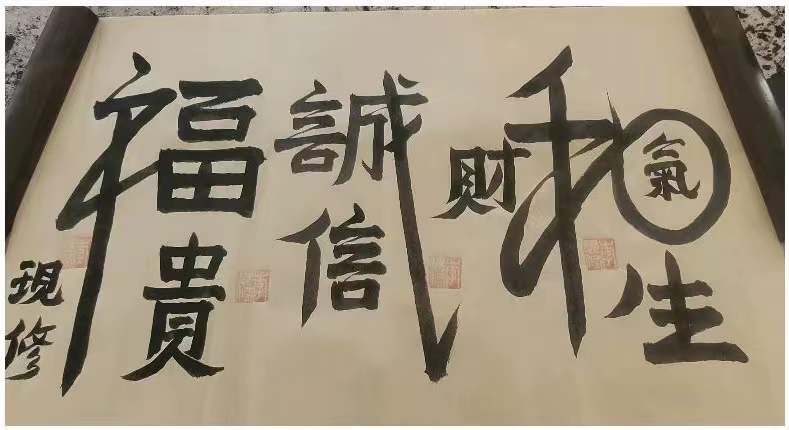 和氣生財
誠信
福貴
現修